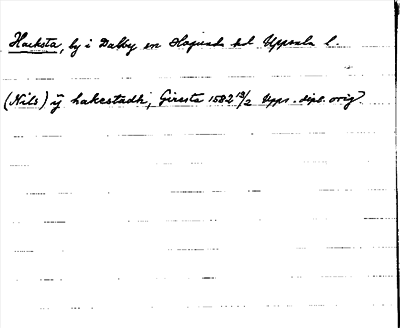 Hacksta, by i Dalby sn Hagunda hd Uppsala l.
(Nils) ij hakestadh, Giresta 1582 13/2 Upps. dipl. orig